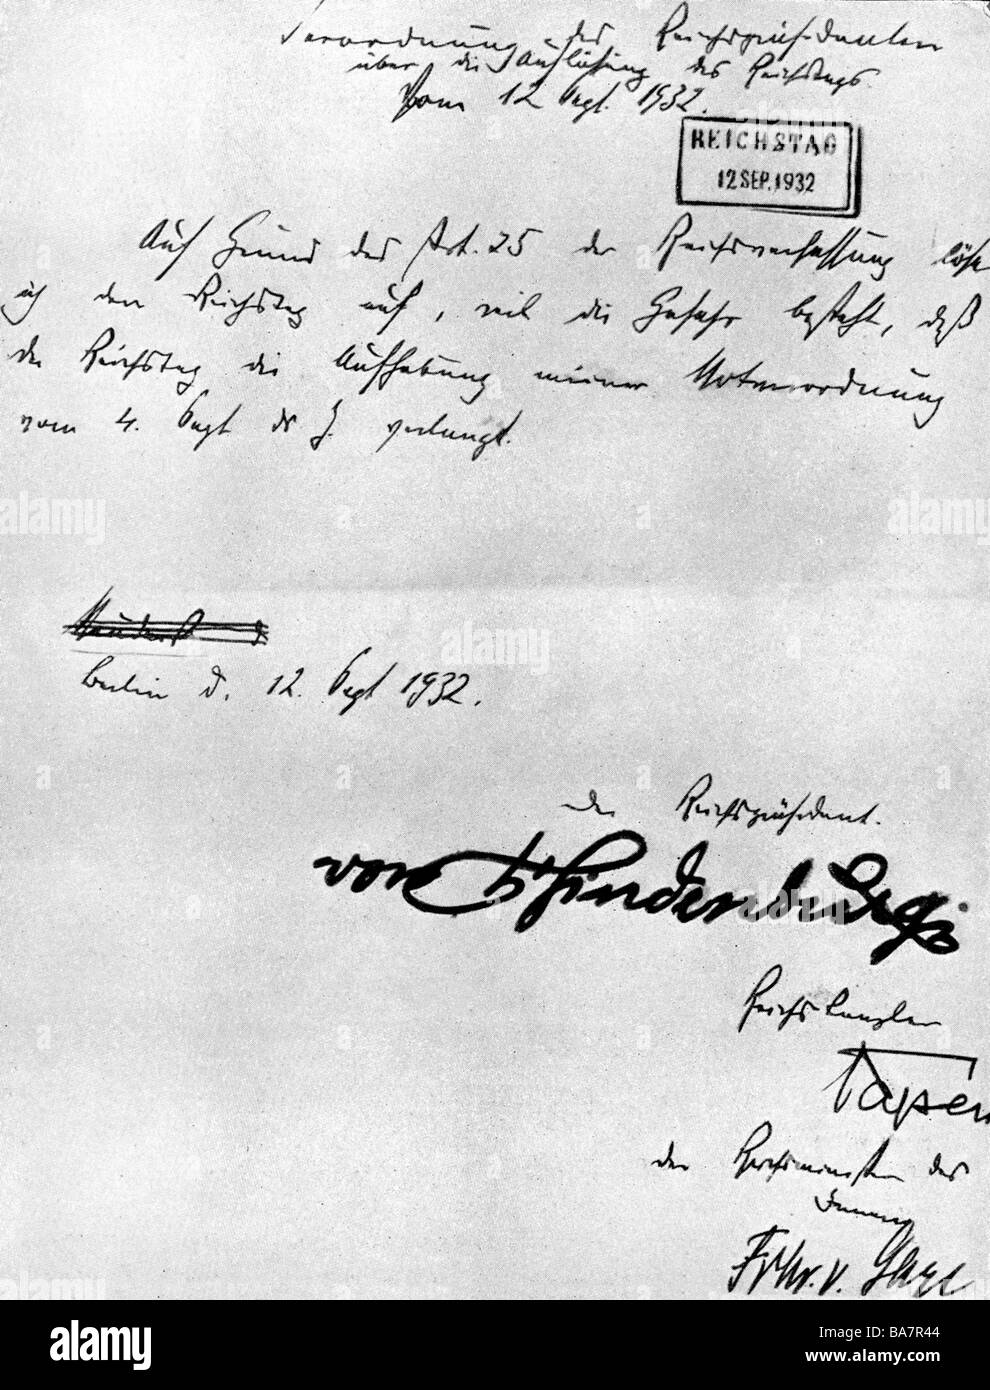 Verordnung des Reichspräsidenten
über die Auflösung des Reichstags.
Vom 12 Sept. 1932.
REICHSTAG
12 SEP. 1932
Auf Grund des Art. 25 der Reichsverfassung löse
ich den Reichstag auf, weil die Gefahr besteht, daß
der Reichstag die Aufhebung meiner Notverordnung
vom 4. Sept ds J. verlangt.
Berlin d. 12. Sept 1932.
der Reichspräsident.
von Hindenburg
Reichskanzler
Papen
der Reichsminister des
Innern
Frhr. v. Gayl
alamy
Image ID: BA7R44
www.alamy.com